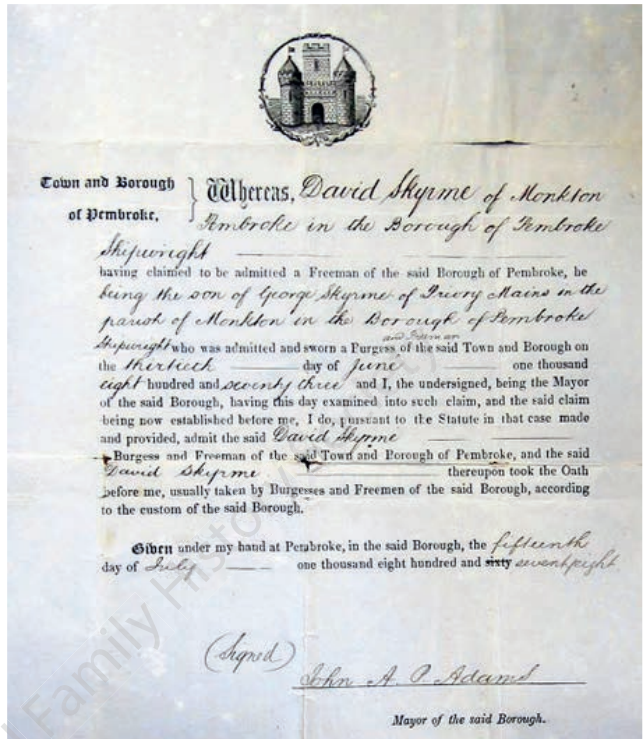 Town and Borough
of Pembroke,
Whereas, David Skyrme of Monkton
Pembroke in the Borough of Pembroke
Shipwright
having claimed to be admitted a Freeman of the said Borough of Pembroke, he
being the son of George Skyrme of Priory Mains in the
parish of Monkton in the Borough of Pembroke
and Freeman
Shipwright who was admitted and sworn a Burgess of the said Town and Borough on
the thirtieth day of June one thousand
eight hundred and seventy three and I, the undersigned, being the Mayor
of the said Borough, having this day examined into such claim, and the said claim
being now established before me, I do, pursuant to the Statute in that case made
and provided, admit the said David Skyrme
a Burgess and Freeman of the said Town and Borough of Pembroke, and the said
David Skyrme thereupon took the Oath
before me, usually taken by Burgesses and Freemen of the said Borough, according
to the custom of the said Borough.
Given under my hand at Pembroke, in the said Borough, the fifteenth
day of July one thousand eight hundred and sixty seventy eight
(Signed)
John A. P. Adams
Mayor of the said Borough.
Family History